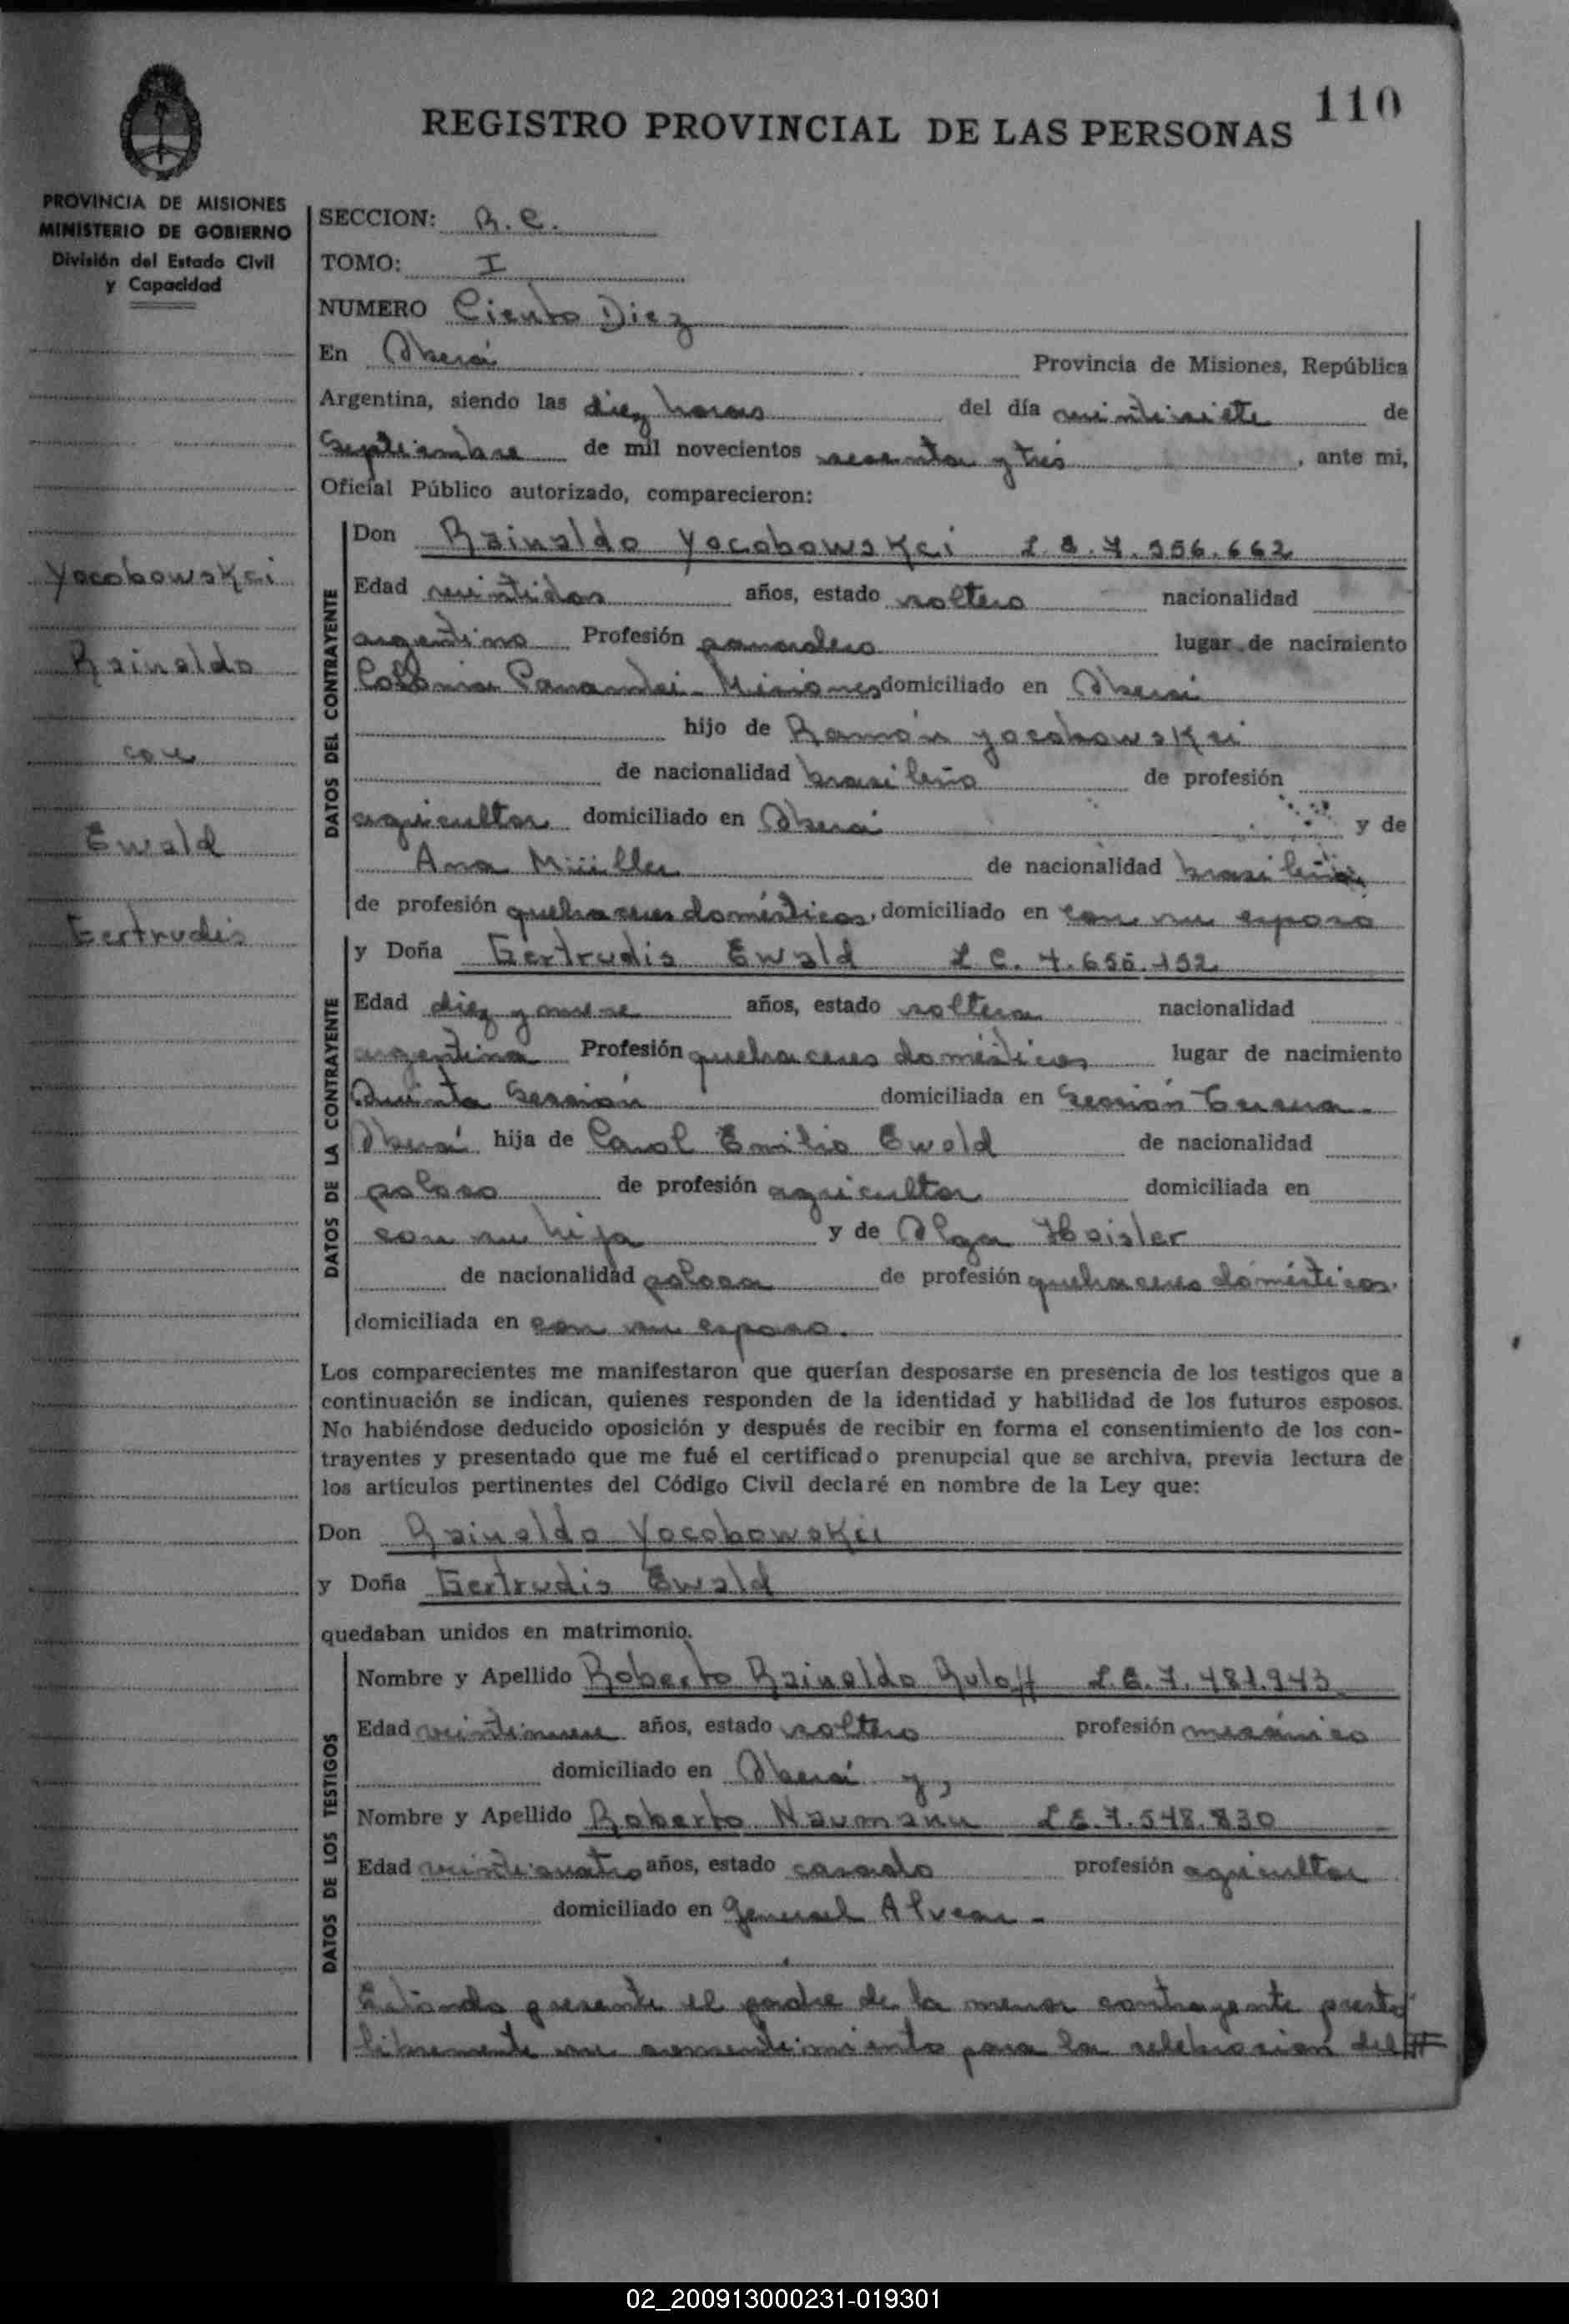 110
REGISTRO PROVINCIAL DE LAS PERSONAS
PROVINCIA DE MISIONES
MINISTERIO DE GOBIERNO
División del Estado Civil
y Capacidad
Yocobowskei
Rainoldo
con
Ewald
Gertrudis
SECCION: R. C.
TOMO: I
NUMERO Ciento Diez
En Oberá Provincia de Misiones, República
Argentina, siendo las diez horas del día veintisiete de
Septiembre de mil novecientos sesenta y tres, ante mi,
Oficial Público autorizado, comparecieron:
DATOS DEL CONTRAYENTE
Don Rainoldo Yocobowskei L.E. 7.556.662
Edad veintidos años, estado soltero nacionalidad
argentino Profesión panadero lugar de nacimiento
Colonia Panambi - Misiones domiciliado en Oberá
hijo de Ramón Yocobowskei
de nacionalidad brasileño de profesión
agricultor domiciliado en Oberá y de
Ana Müller de nacionalidad brasileña
de profesión quehaceres domésticos, domiciliado en con su esposo
DATOS DE LA CONTRAYENTE
y Doña Gertrudis Ewald L C. 4.656.152
Edad diez y nueve años, estado soltera nacionalidad
argentina Profesión quehaceres domésticos lugar de nacimiento
Quinta Sección domiciliada en Sección Tercera -
Oberá hija de Carol Emilio Ewald de nacionalidad
polaco de profesión agricultor domiciliada en
con su hija y de Olga Heisler
de nacionalidad polaca de profesión quehaceres domésticos.
domiciliada en con su esposo.
Los comparecientes me manifestaron que querían desposarse en presencia de los testigos que a
continuación se indican, quienes responden de la identidad y habilidad de los futuros esposos.
No habiéndose deducido oposición y después de recibir en forma el consentimiento de los con-
trayentes y presentado que me fué el certificado prenupcial que se archiva, previa lectura de
los artículos pertinentes del Código Civil declaré en nombre de la Ley que:
Don Rainoldo Yocobowskei
y Doña Gertrudis Ewald
quedaban unidos en matrimonio.
DATOS DE LOS TESTIGOS
Nombre y Apellido Roberto Rainoldo Buloff L.E. 7.481.943
Edad veintinueve años, estado soltero profesión mecánico
domiciliado en Oberá y,
Nombre y Apellido Roberto Naumann L E. 7.548.830
Edad veinticuatro años, estado casado profesión agricultor
domiciliado en General Alvear -
Estando presente el padre de la menor contrayente prestó
libremente su consentimiento para la celebración del #
02_200913000231-019301